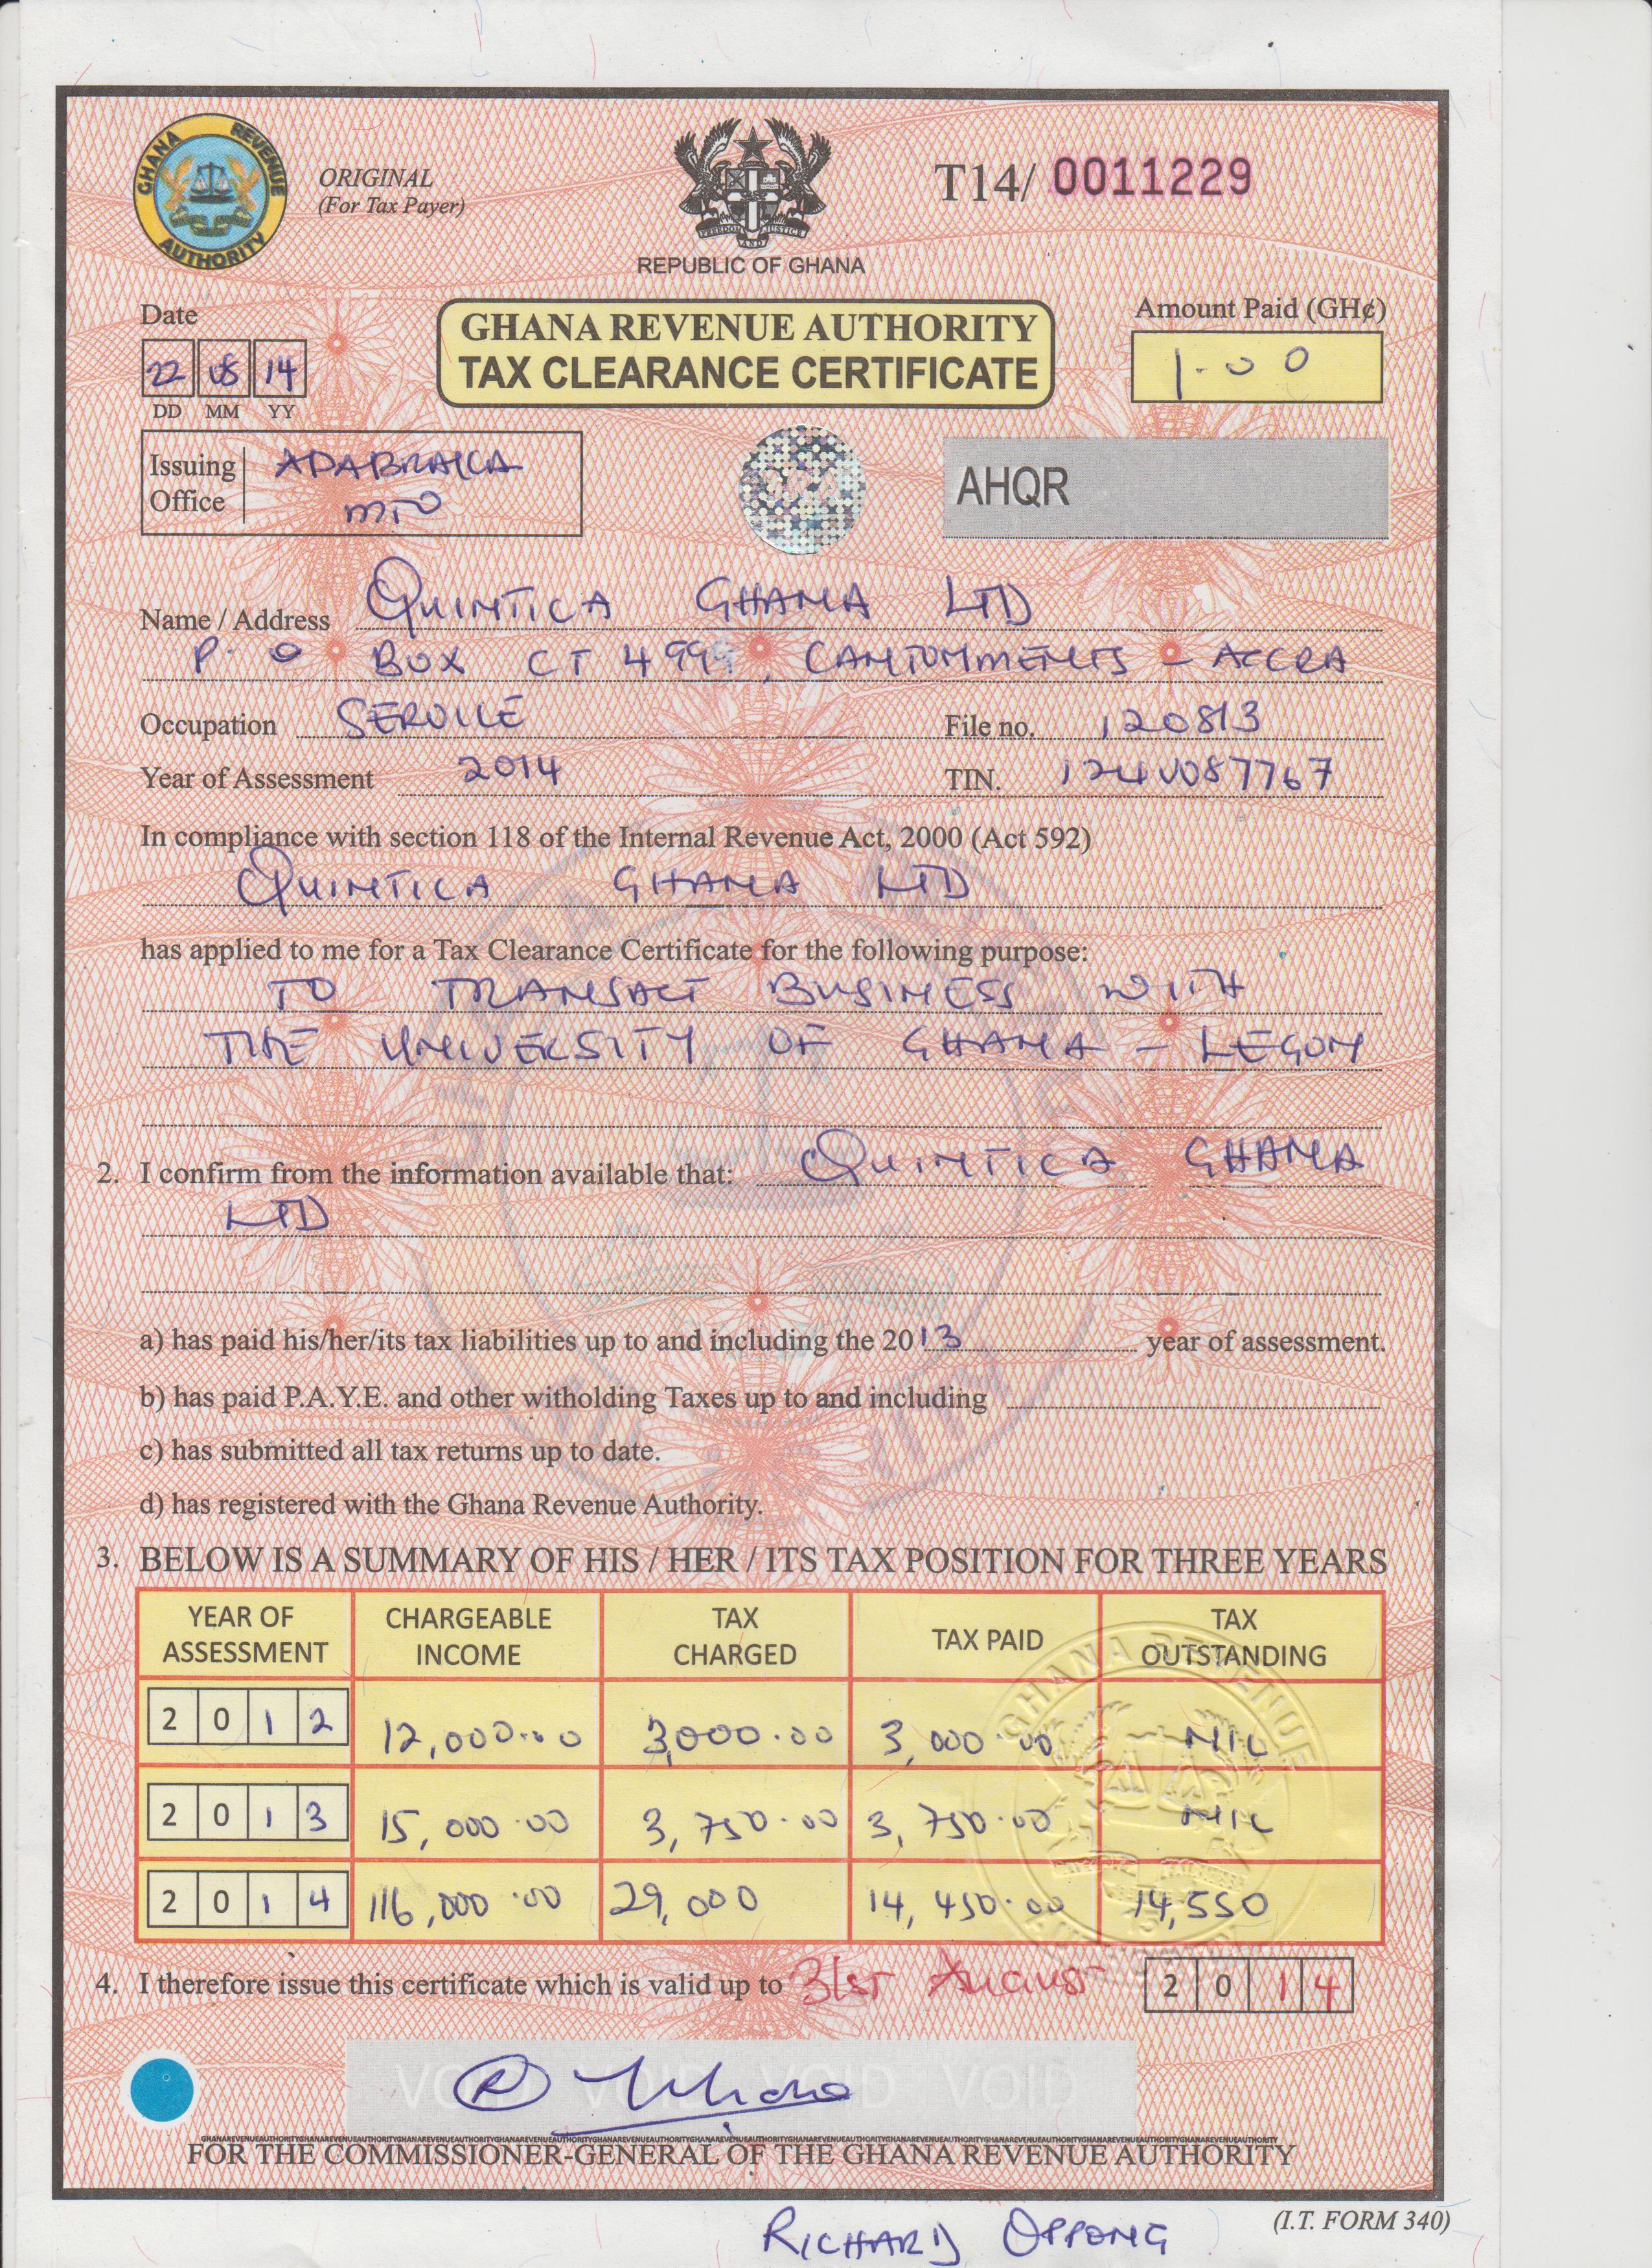 GHANA REVENUE AUTHORITY
ORIGINAL
(For Tax Payer)
FREEDOM AND JUSTICE
REPUBLIC OF GHANA
T14/ 0011229
Date
22 05 14
DD MM YY
GHANA REVENUE AUTHORITY
TAX CLEARANCE CERTIFICATE
Amount Paid (GH¢)
1.00
Issuing Office ADABRAKA
MTO
AHQR
Name / Address QUINTICA GHANA LTD
P. O BOX CT 4999, CANTONMENTS - ACCRA
Occupation SERVICE File no. 120813
Year of Assessment 2014 TIN. 124V087767
In compliance with section 118 of the Internal Revenue Act, 2000 (Act 592)
QUINTICA GHANA LTD
has applied to me for a Tax Clearance Certificate for the following purpose:
TO TRANSACT BUSINESS WITH
THE UNIVERSITY OF GHANA - LEGON
2. I confirm from the information available that: QUINTICA GHANA
LTD
a) has paid his/her/its tax liabilities up to and including the 2013 year of assessment.
b) has paid P.A.Y.E. and other witholding Taxes up to and including
c) has submitted all tax returns up to date.
d) has registered with the Ghana Revenue Authority.
3. BELOW IS A SUMMARY OF HIS / HER / ITS TAX POSITION FOR THREE YEARS
YEAR OF ASSESSMENT CHARGEABLE INCOME TAX CHARGED TAX PAID TAX OUTSTANDING
2012 12,000.00 3,000.00 3,000.00 NIL
2013 15,000.00 3,750.00 3,750.00 NIL
2014 116,000.00 29,000 14,450.00 14,550
4. I therefore issue this certificate which is valid up to 31st August 2014
VOID VOID VOID VOID
FOR THE COMMISSIONER-GENERAL OF THE GHANA REVENUE AUTHORITY
(I.T. FORM 340)
RICHARD OPPONG